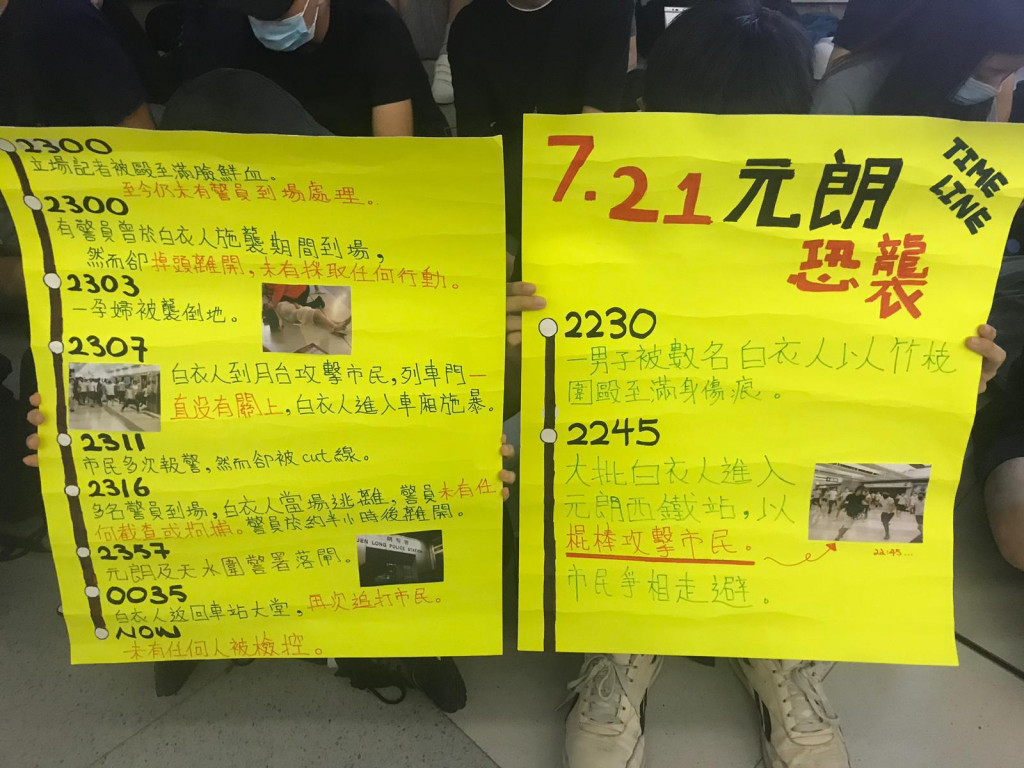 7.21 元朗
恐襲
TIME
LINE
2230
一男子被數名白衣人以竹枝
圍毆至滿身傷痕。
2245
大批白衣人進入
元朗西鐵站,以
棍棒攻擊市民。
市民爭相走避。
22:45...
2300
立場記者被毆至滿臉鮮血。
至今仍未有警員到場處理。
2300
有警員曾於白衣人施襲期間到場,
然而卻掉頭離開,未有採取任何行動。
2303
一孕婦被襲倒地。
2307
白衣人到月台攻擊市民,列車門一
直沒有關上,白衣人進入車廂施暴。
2311
市民多次報警,然而卻被cut線。
2316
多名警員到場,白衣人當場逃離,警員未有任
何截查或拘捕。警員於約半小時後離開。
2357
元朗及天水圍警署落閘。
YUEN LONG POLICE STATION
0035
白衣人返回車站大堂,再次追打市民。
NOW
未有任何人被檢控。